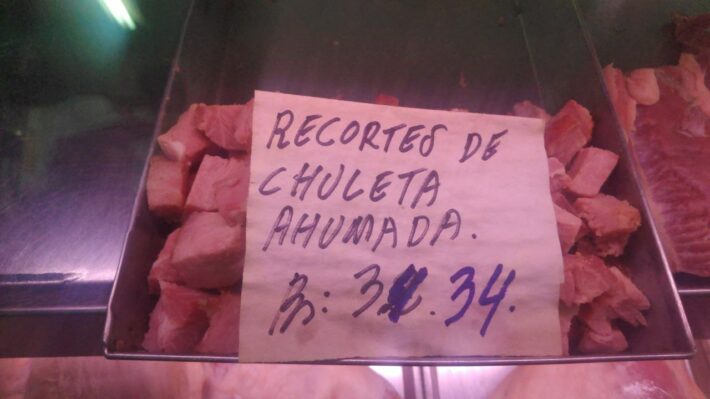 RECORTES DE
CHULETA
AHUMADA.
34.